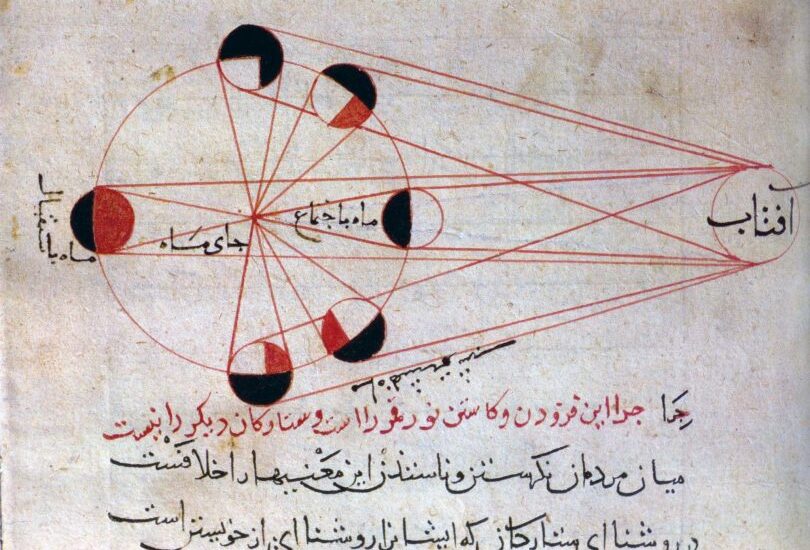 افتاب
ماه باجتماع
جای ماه
ماه باستقبال
چرا چرا این فزودن وکاستن نور قمر را است وستارکان دیکر را نیست
میان مردمان نکرستن وناسندن این معنیها را خلافست
در روشنای ستارکان که ایشانرا روشنای از خویشتن است